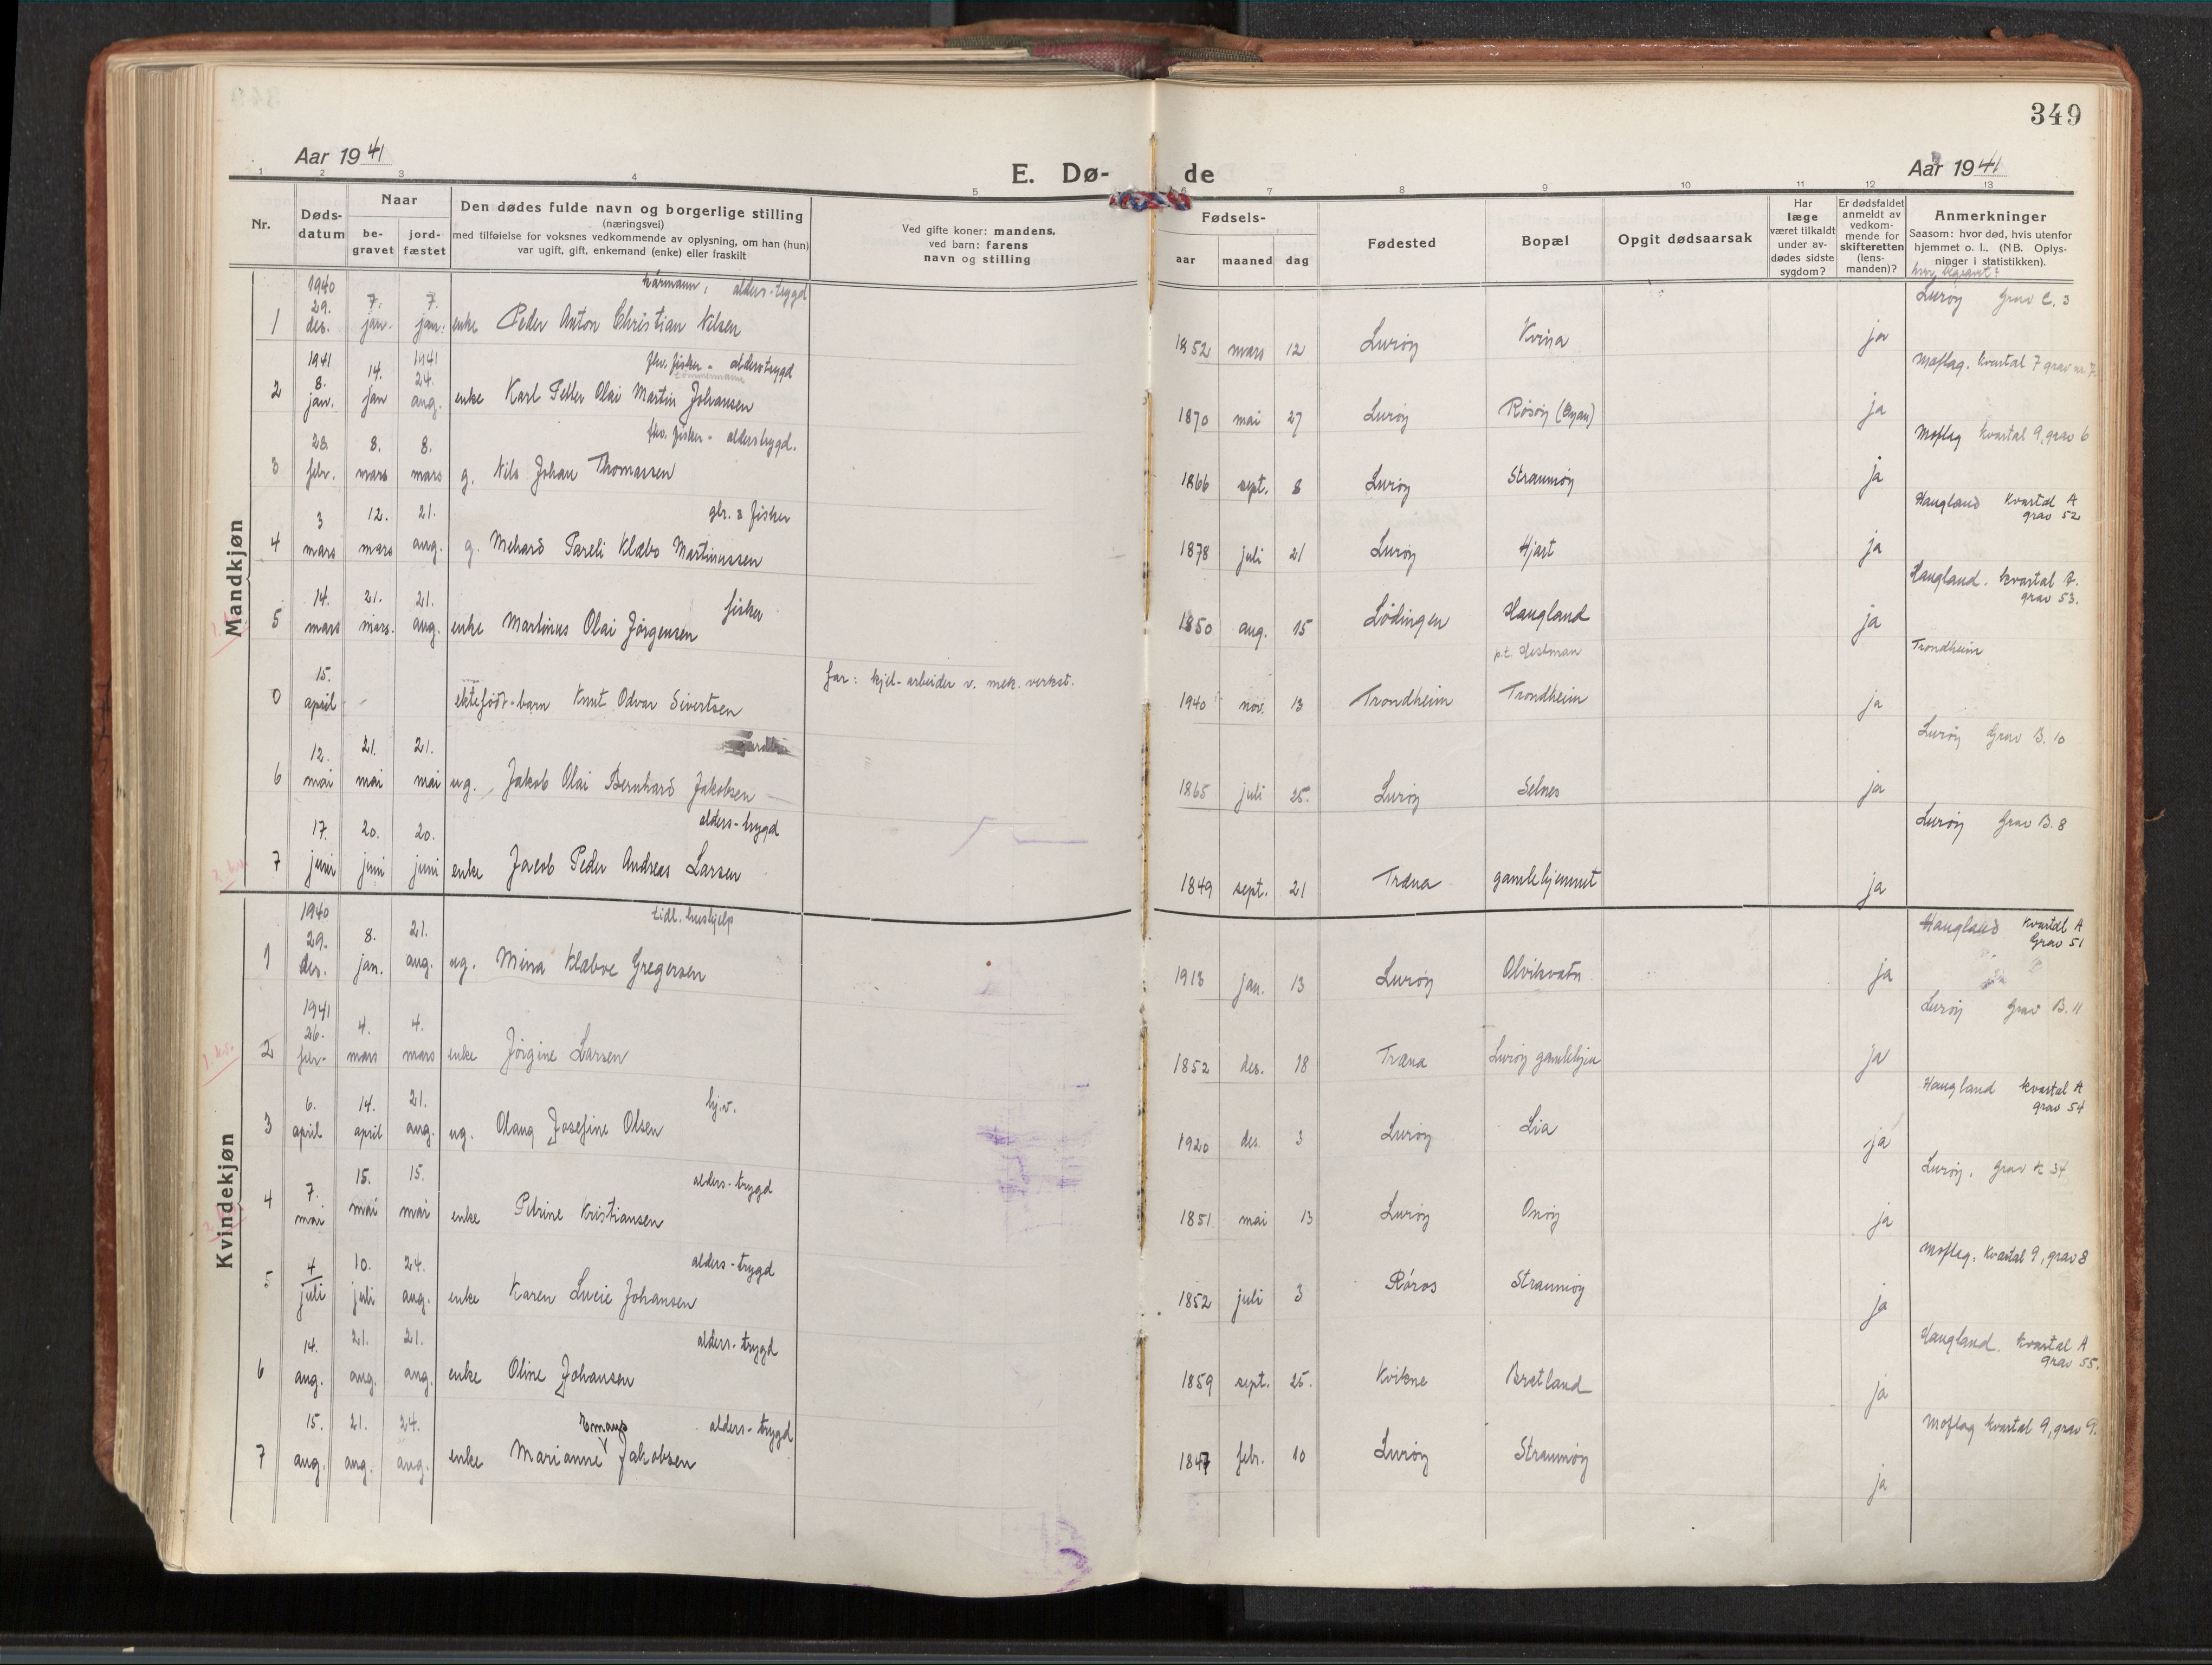 349
Aar 1941
E. Dø-
de
Aar 1941
1 2 3 4 5 6 7 8 9 10 11 12 13
Nr.
Døds-
datum
Naar
be-
gravet
jord-
fæstet
Den dødes fulde navn og borgerlige stilling
(næringsvei)
med tilføielse for voksnes vedkommende av oplysning, om han (hun)
var ugift, gift, enkemand (enke) eller fraskilt
Ved gifte koner: mandens,
ved barn: farens
navn og stilling
Fødsels-
aar maaned dag
Fødested
Bopæl
Opgit dødsaarsak
Har
læge
været tilkaldt
under av-
dødes sidste
sygdom?
Er dødsfaldet
anmeldt av
vedkom-
mende for
skifteretten
(lens-
manden)?
Anmerkninger
Saasom: hvor død, hvis utenfor
hjemmet o. l.. (NB. Oplys-
ninger i statistikken).
hvor begravet?
Mandkjøn
kårmann, alders-trygd
1 1940 29. des. 7. jan. 7. jan. enke Peder Anton Christian Nilsen 1852 mars 12 Lurøy Kvina ja Lurøy Grav C. 3
fhv. fisker - alderstrygd
tømmermann
2 1941 8. jan. 14. jan 1941 24. aug. enke Karl Petter Olai Martin Johansen 1870 mai 27 Lurøy Røsøy (Øyan) ja Moflag. kvartal 7 grav nr. 7.
fhv. fisker - alderstrygd.
3 28. febr. 8. mars 8. mars g. Nils Johan Thomassen 1866 sept. 8 Lurøy Straumøy ja Moflag kvartal 9, grav 6
gbr. & fisker
4 3 mars 12. mars 21. aug. g. Mehard Pareli Klæbo Martinussen 1878 juli 21 Lurøy Hjart ja Haugland kvartal A
grav 52
fisker
5 14. mars 21. mars. 21. aug. enke Martinus Olai Jørgensen 1850 aug. 15 Lødingen Haugland ja Haugland. kvartal A.
grav 53.
p.t. Hestman
far: kjel-arbeider v. mek. verkst.
0 15. april - ektefødt-barn Knut Odvar Sivertsen 1940 nov. 13 Trondheim Trondheim ja Trondheim
6 12. mai 21. mai 21. mai ug. Jakob Olai Bernhard Jakobsen 1865 juli 25. Lurøy Selnes ja Lurøy Grav B. 10
alders-trygd
7 17. juni 20. juni 20. juni enke Jacob Peder Andreas Larsen 1849 sept. 21 Træna gamlehjemmet ja Lurøy Grav B. 8
Kvindekjøn
tidl. hushjelp
1 1940 29. des. 8. jan. 21. aug. ug. Mina Klæboe Gregersen 1913 jan. 13 Lurøy Olvikvatn ja Haugland kvartal A
Grav 51
1. kv.
2 1941 26. febr. 4. mars 4. mars enke Jørgine Larsen 1852 des. 18 Træna Lurøy gamlehjem ja Lurøy Grav B. 11
hj.v.
3 6. april 14. april 21. aug. ug. Olaug Josefine Olsen 1920 des. 3 Lurøy Lia ja Haugland kvartal A
grav 54
alders-trygd
4 7. mai 15. mai 15. mai enke Petrine Kristiansen 1851 mai 13 Lurøy Onøy ja Lurøy. Grav K 34
alders-trygd
5 4 juli 10. juli 24. aug. enke Karen Lucie Johansen 1852 juli 3 Røros Straumøy ja Moflag. kvartal 9, grav 8
alders-trygd
6 14. aug. 21. aug. 21. aug. enke Oline Johansen 1859 sept. 25. Kvikne Bratland ja Haugland. kvartal A
grav 55.
Emaus alders-trygd
7 15. aug. 21. aug. 24. aug. enke Marianne Jakobsen 1847 febr. 10 Lurøy Straumøy ja Moflag kvartal 9, grav 9.